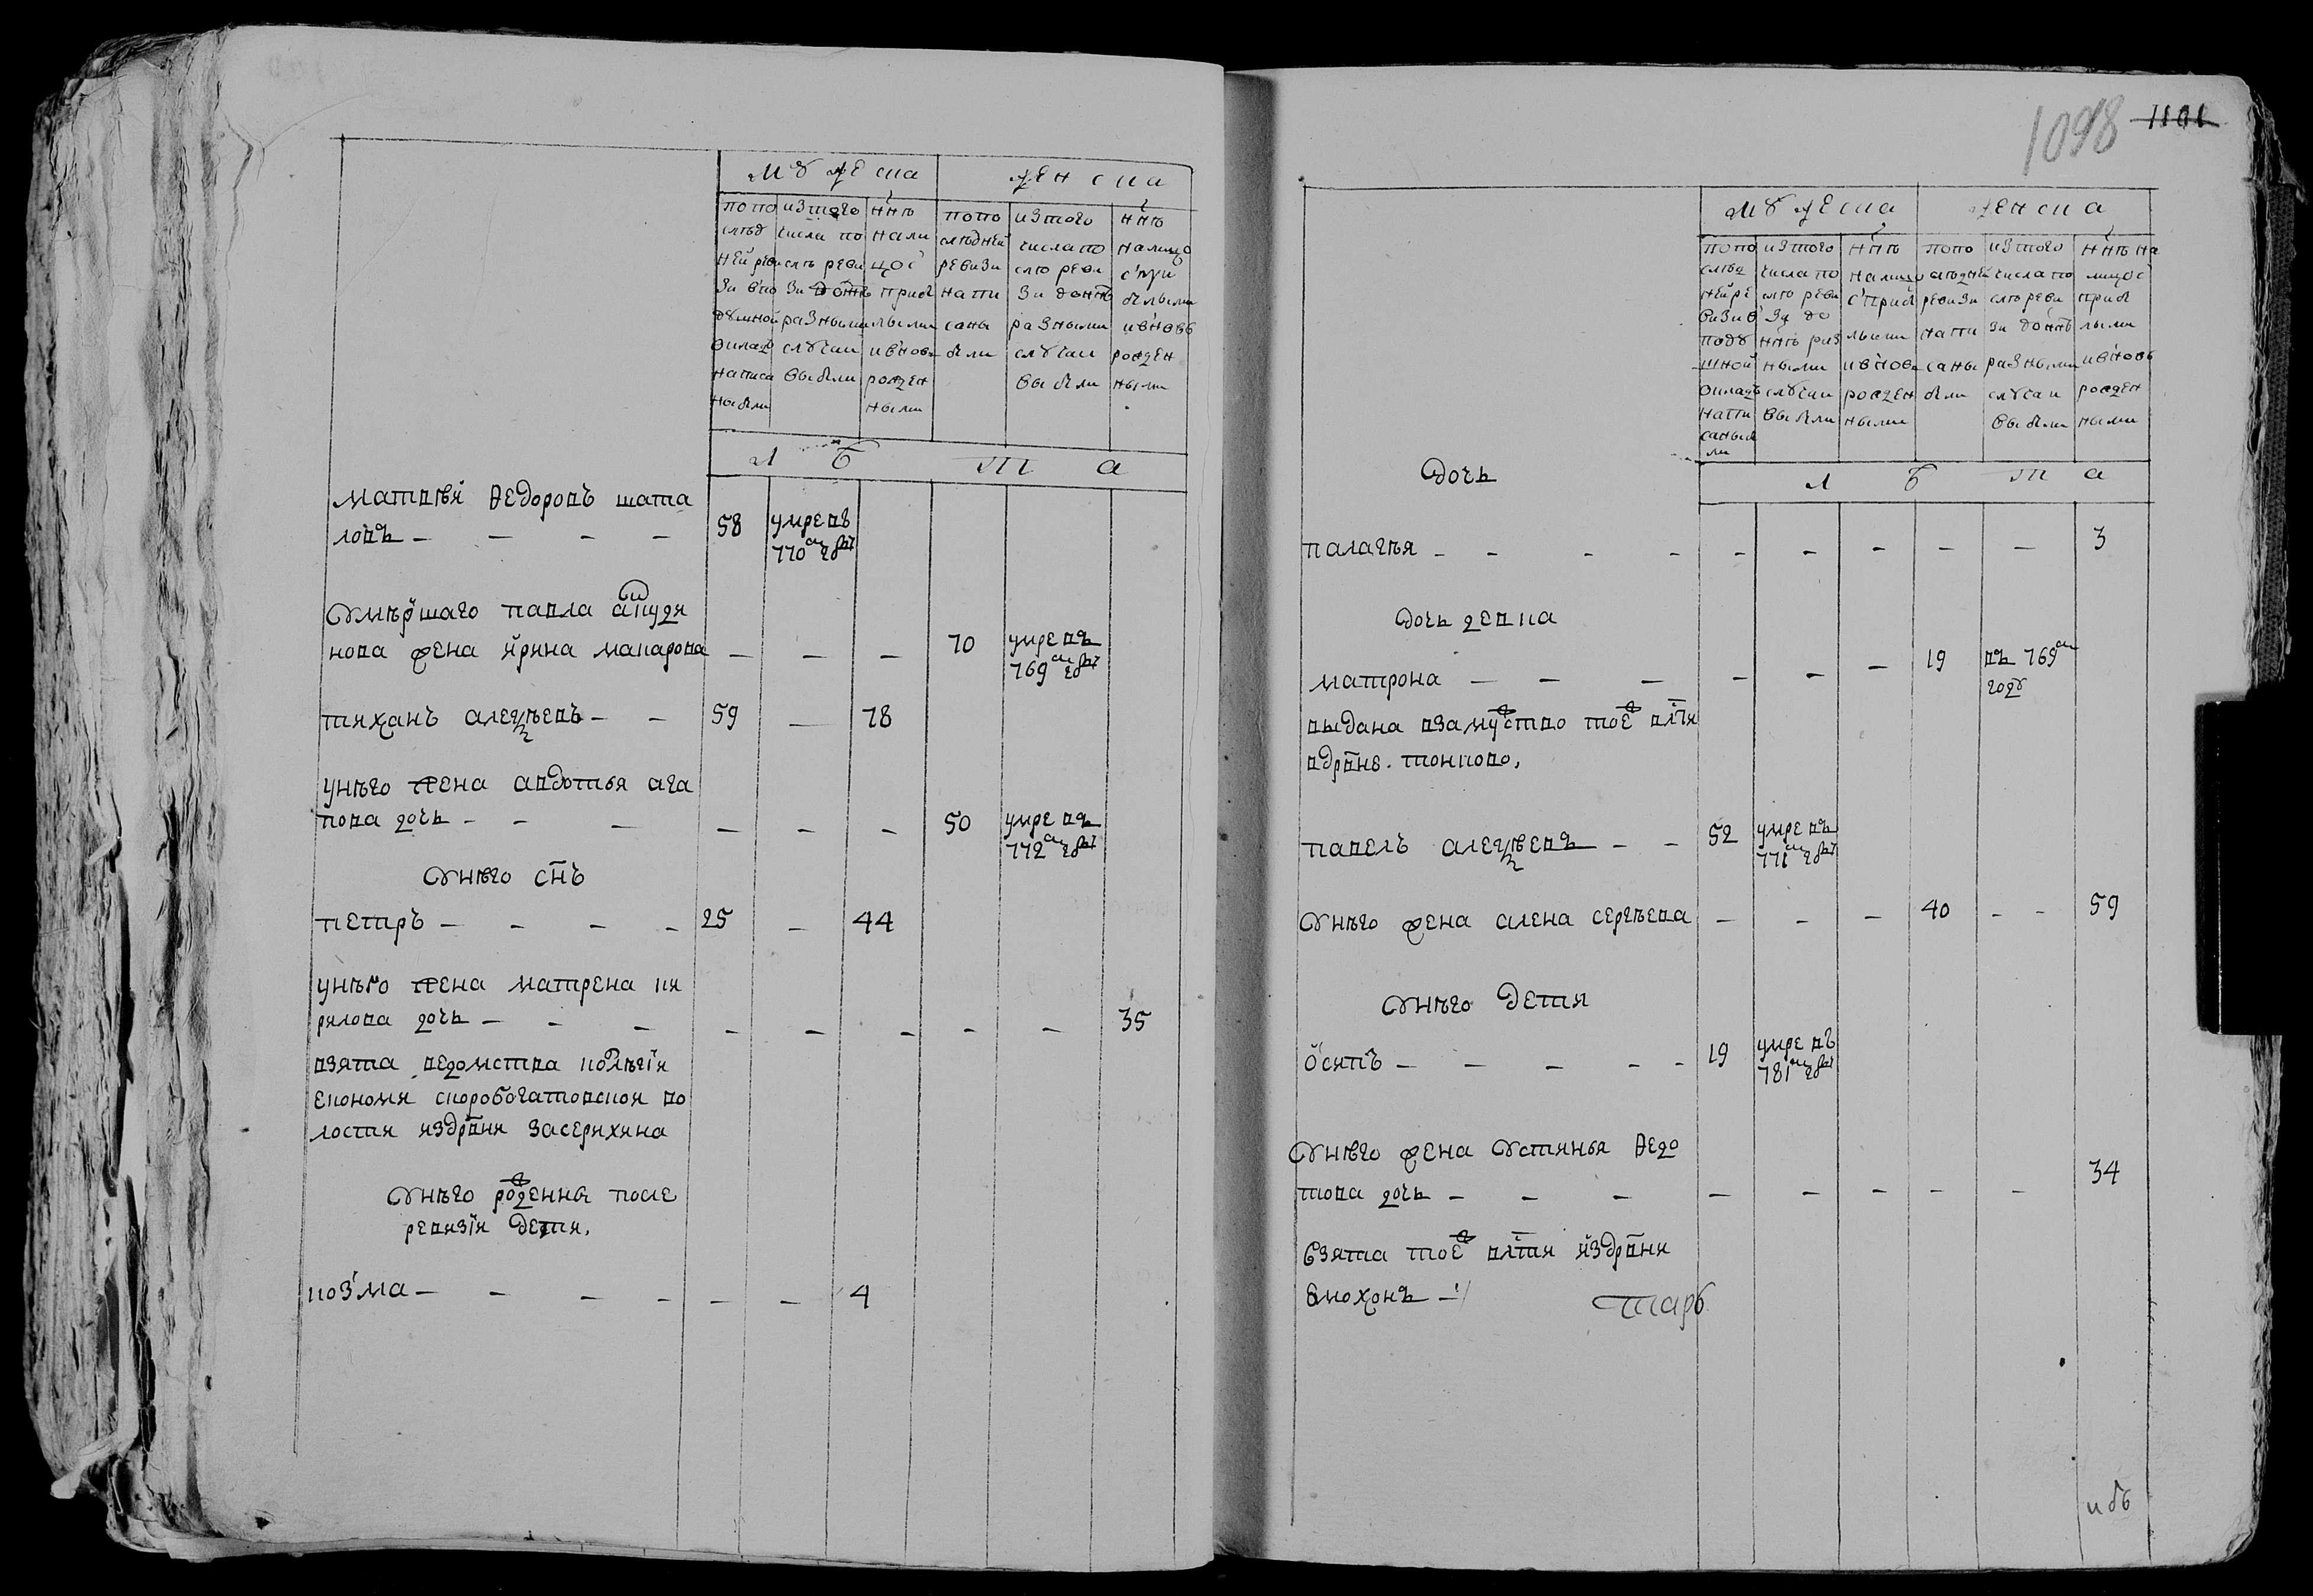 мꙋжеска
женска
попо
слѣд
ней реви
зи в по
дꙋшной
оклад
написа
ны были
из того
числа по
сю реви
зи до ннѣ
разными
слꙋчаи
выбыли
ннѣ
нали
цо с
прибы
лыми
и внов
рожден
ными
попо
следней
ревизи
напи
саны
были
из того
числа по
сю реви
зи до ннѣ
разными
слꙋчаи
выбыли
ннѣ
налицо
с при
былыми
и вновь
рожден
ными
лѣта
матвѣй ѳедоровъ шата
ловъ — — — —
58
умре въ
770м годꙋ
Ꙋмѣршаго павла
нова жена ирина макарова — — —
70
умре въ
769м годꙋ
тихонъ алеѯѣевъ — —
59 — 78
унѣго жена авдотья ага
пова дочь — — — — — —
50
умре въ
772м годꙋ
Ꙋнѣго сн҃ъ
петръ — — — —
25 — 44
унѣго жена матрена ки
рилова дочь — — — — — — — —
35
взята ведомства
економи скоробогатовскои во
лости издрвни засерихина
Ꙋнѣго роженныя после
ревизïи дети.
козма — — — — — —
4
1098
1101
мꙋжеска
женска
попо
слѣд
ней ре
визи в
подꙋ
шной
окладъ
напи
саны бы
ли
из того
числа по
сю реви
зи до
ннѣ раз
ными
слꙋчаи
выбыли
ннѣ
налицо
с прибы
лыми
и внов
рожден
ными
попо
следней
ревизи
напи
саны
были
из того
числа по
сю реви
зи до ннѣ
разными
слꙋчаи
выбыли
ннѣ на
лицо с
прибы
лыми
и вновь
рожден
ными
лѣта
дочь
палагѣя — — — — — — — — —
3
дочь девка
матрона — — — — — —
19
въ 769м
годꙋ
выдана взамужство тоеж влти
вдрвнѣ. тонково.
павелъ алеѯѣевъ — —
52
умре въ
771м годꙋ
Ꙋнѣго жена алена сергѣева — — —
40 — — 59
Ꙋнѣго дети
осипъ — — — — —
19
умре въ
781м годꙋ
Ꙋнѣго жена Ꙋстинья ѳедо
това дочь — — — — — — — —
34
взята тоеж влсти издрвни
мохонъ —
тарѣ